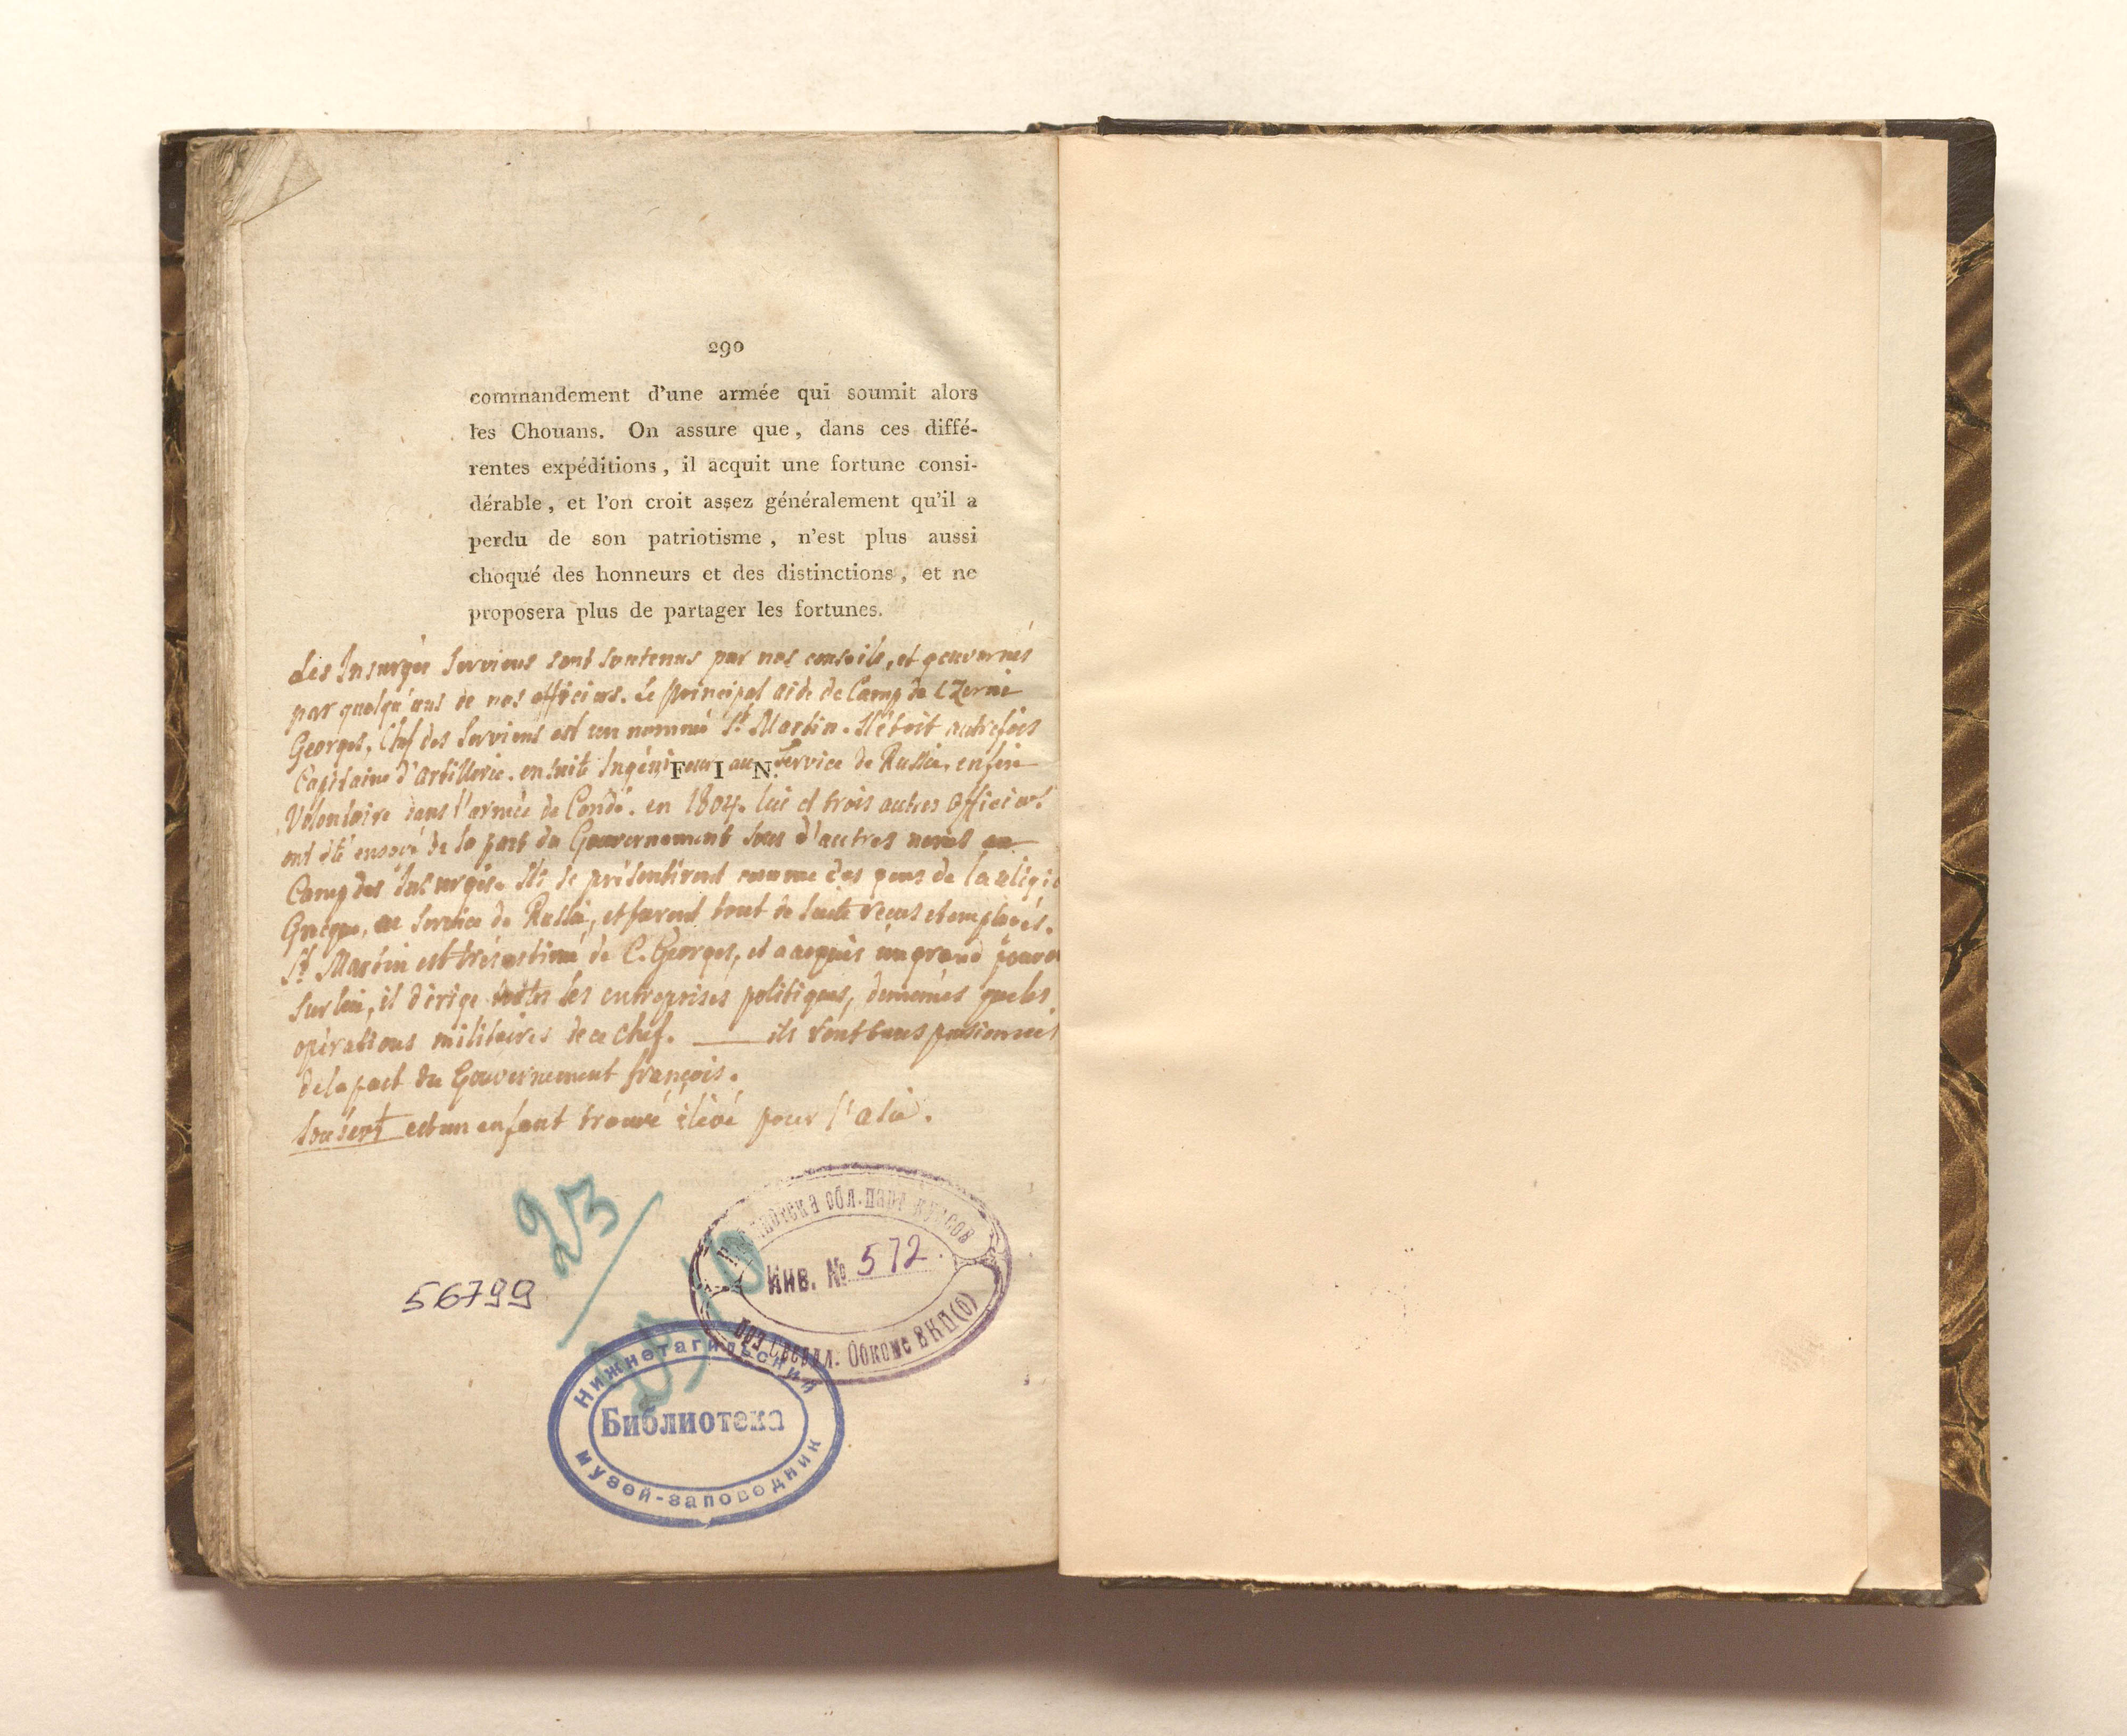 290
commandement d'une armée qui soumit alors
les Chouans. On assure que, dans ces diffé-
rentes expéditions, il acquit une fortune consi-
dérable, et l'on croit assez généralement qu'il a
perdu de son patriotisme, n'est plus aussi
choqué des honneurs et des distinctions, et ne
proposera plus de partager les fortunes.
Les Insurgés Serviens sont soutenus par nos conseils, et gouvernés
par quelqu'uns de nos officiers. Le principal aide de Camp de CZerni
Georges, Chef des Serviens est un nommé St. Martin. Il étoit autrefois
Capitaine d'artillerie. ensuite Ingénieur au Service de Russie, enfin
FIN.
Volontaire dans l'armée de Condé. en 1804. lui et trois autres officiers
ont été envoyé de la part du Gouvernement sous d'autres noms au
Camp des Insurgés. Ils se présentèrent comme des gens de la religio
Grecque, au Service de Russie, et furent tout de suite recus et employés.
St. Martin est très estimé de C. Georges, et a acquis un grand pouvo
sur lui, il dirige toutes les entreprises politiques, de mêmes que les
opérations militaires de ce chef. ils sont tous
de la part du Gouvernement françois.
est un enfant trouvé élevé pour l'
23/
29/10
56799
Библиотека обл. парт. курсов
Инв. № 572.
при Свердл. Обкоме ВКП(б)
Нижнетагильский
Библиотека
музей-заповедник